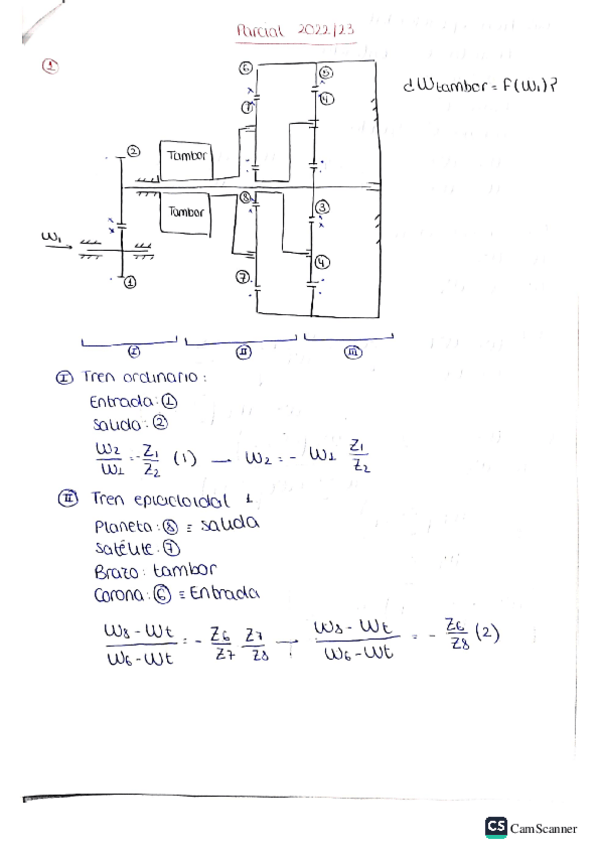 Parcial 2022/23
①
¿Wtambor = F(W₁)?
⑥
⑤
⑦
④
②
Tambor
⑧
③
Tambor
W₁
④
⑦
①
Ⓘ
Ⓘⓘ
Ⓘⓘⓘ
Ⓘ Tren ordinario:
Entrada: ①
Salida: ②
W₂/W₁ = - Z₁/Z₂ (1) → W₂ = - W₁ Z₁/Z₂
Ⓘⓘ Tren epicicloidal 1
Planeta: ⑧ ≡ salida
Satélite: ⑦
Brazo: tambor
Corona: ⑥ ≡ Entrada
(W₈ - Wt)/(W₆ - Wt) = - Z₆/Z₇ Z₇/Z₈ → (W₈ - Wt)/(W₆ - Wt) = - Z₆/Z₈ (2)
CS CamScanner